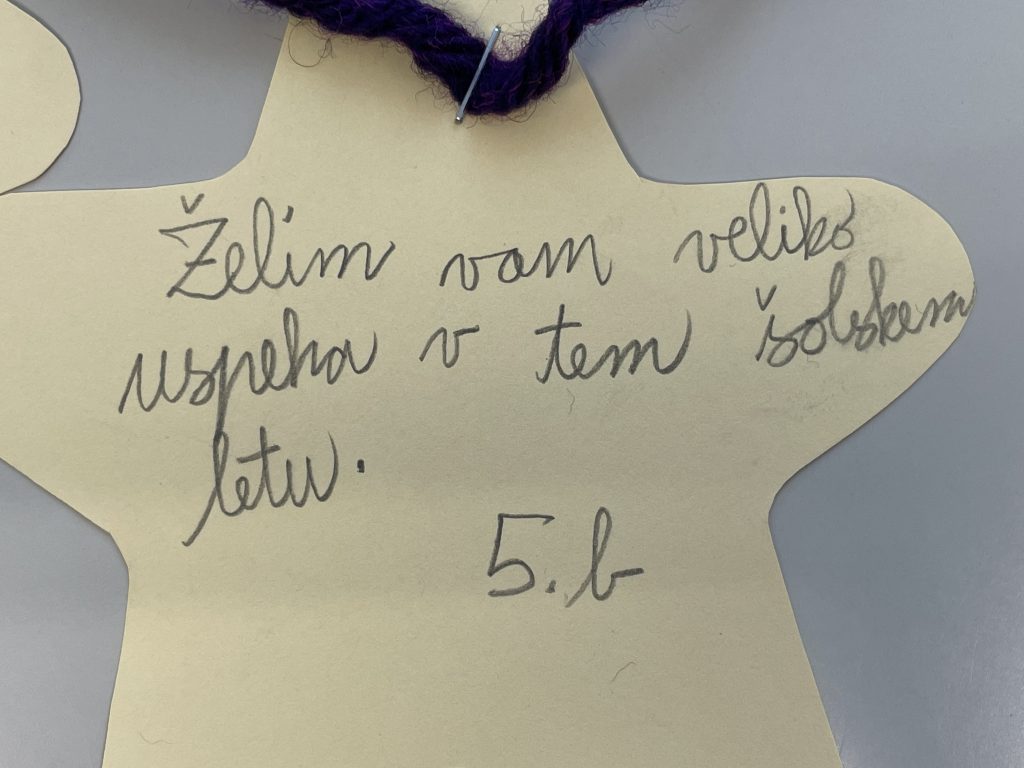 Želim vam veliko
uspeha v tem šolskem
letu.
5.b